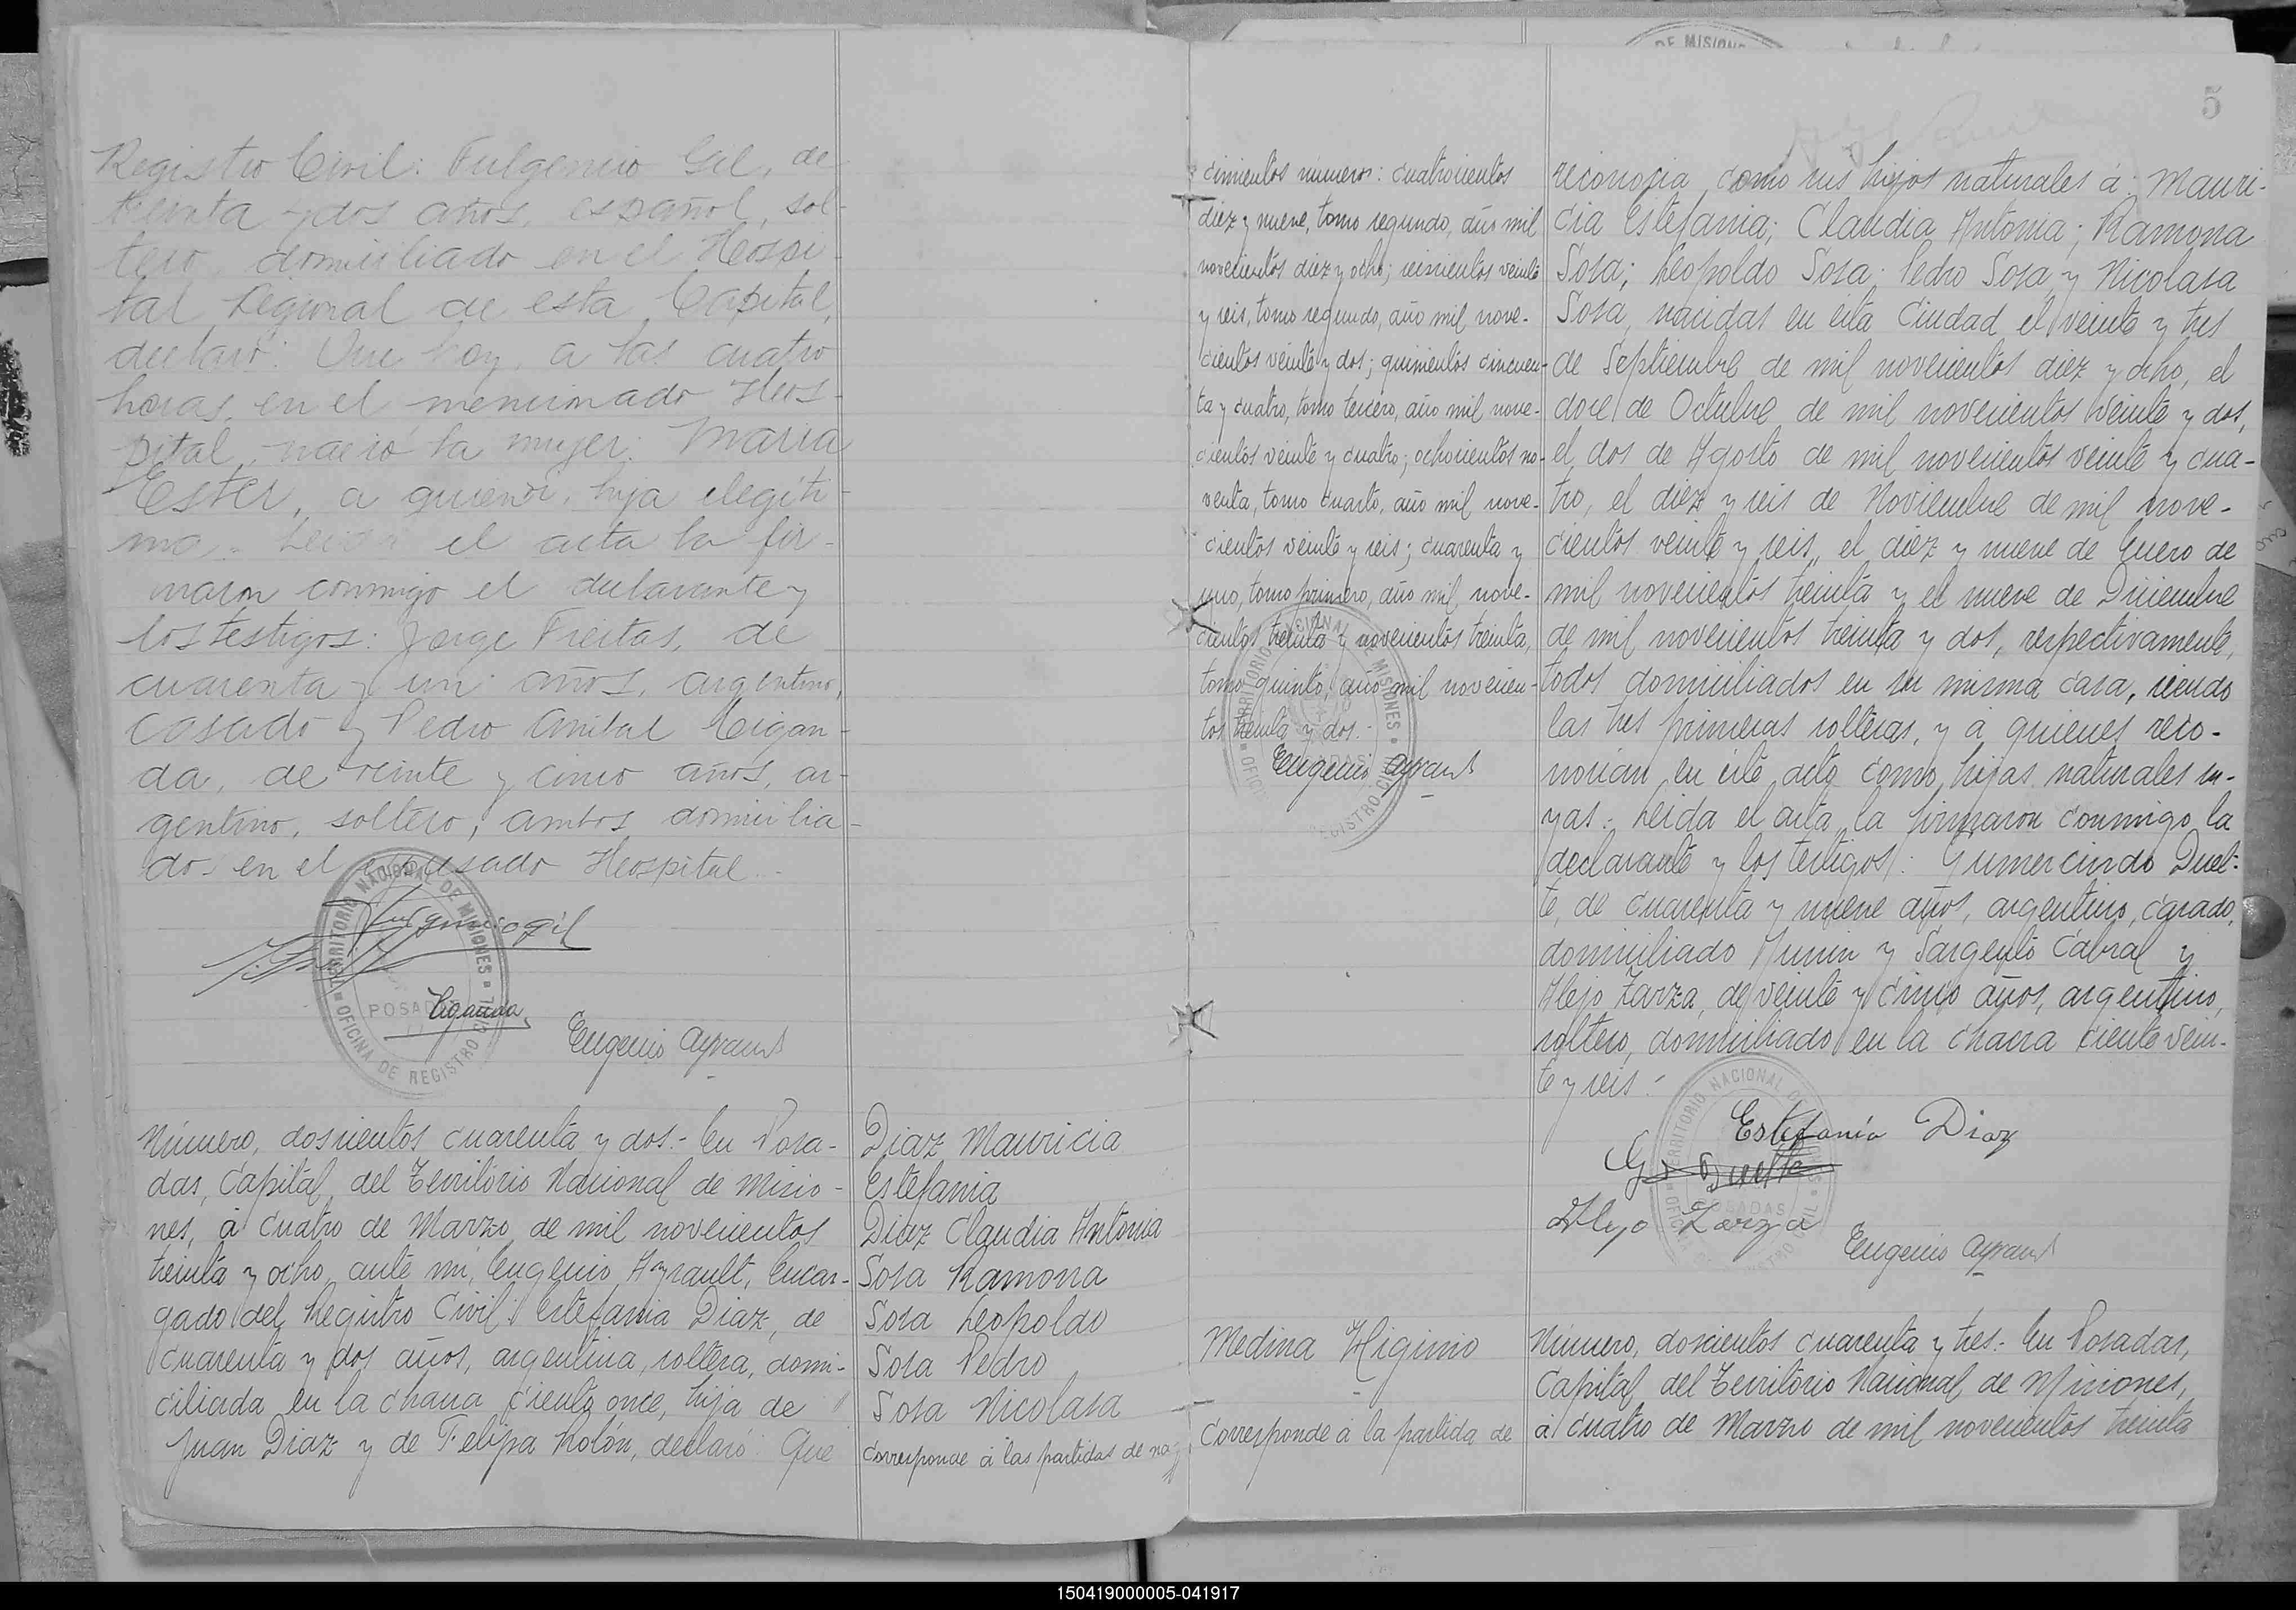 Registro Civil: Fulgencio Gil, de
treinta y dos años, español, sol-
tero, domiciliado en el Hospi-
tal Regional de esta Capital,
declaró: Que hoy, a las cuatro
horas, en el mencionado Hos-
pital, nació la mujer: Maria
Ester, a quien, hija legíti-
ma.- Leida el acta la fir-
maron conmigo el declarante y
los testigos: Jorge Freitas, de
cuarenta y un años, argentino,
casado y Pedro Anibal Cigan-
da, de veinte y cinco años, ar-
gentino, soltero, ambos domicilia-
dos en el expresado Hospital.-
Fulgencio gil
Ciganda
Eugenio Ayrault
TERRITORIO NACIONAL DE MISIONES
POSADAS
OFICINA DE REGISTRO CIVIL
Número, doscientos cuarenta y dos.- En Posa-
das, Capital del Territorio Nacional de Misio-
nes, á cuatro de Marzo de mil novecientos
treinta y ocho, ante mi, Eugenio Ayrault, Encar-
gado del Registro Civil: Estefania Diaz, de
cuarenta y dos años, argentina, soltera, domi-
ciliada en la chacra ciento once, hija de
Juan Diaz y de Felipa Rolón, declaró: Que
Diaz Mauricia
Estefania
Diaz Claudia Antonia
Sosa Ramona
Sosa Leopoldo
Sosa Pedro
Sosa Nicolasa
Corresponde á las partidas de na-
5
DE MISIONES
cimientos números: cuatrocientos
diez y nueve, tomo segundo, año mil
novecientos diez y ocho; seiscientos veinte
y seis, tomo segundo, año mil nove-
cientos veinte y dos; quinientos cincuen-
ta y cuatro, tomo tercero, año mil nove-
cientos veinte y cuatro; ochocientos no-
venta, tomo cuarto, año mil nove-
cientos veinte y seis; cuarenta y
uno, tomo primero, año mil nove-
cientos treinta y novecientos treinta,
tomo quinto, año mil novecien-
tos treinta y dos.-
Eugenio Ayrault
reconocia como sus hijos naturales á: Mauri-
cia Estefania; Claudia Antonia; Ramona
Sosa; Leopoldo Sosa; Pedro Sosa y Nicolasa
Sosa, nacidas en esta Ciudad el veinte y tres
de Septiembre de mil novecientos diez y ocho, el
doce de Octubre de mil novecientos veinte y dos,
el dos de Agosto de mil novecientos veinte y cua-
tro, el diez y seis de Noviembre de mil nove-
cientos veinte y seis, el diez y nueve de Enero de
mil novecientos treinta y el nueve de Diciembre
de mil novecientos treinta y dos, respectivamente,
todos domiciliados en su misma casa, siendo
las tres primeras solteras, y á quienes reco-
nocian en este acto como hijas naturales su-
yas.- Leida el acta, la firmaron conmigo la
declarante y los testigos: Gumercindo Duet-
te, de cuarenta y nueve años, argentino, casado,
domiciliado Junin y Sargento Cabral y
Alejo Zarza, de veinte y cinco años, argentino,
soltero, domiciliado en la chacra ciento vein-
te y seis.-
Estefania Diaz
G Duette
Alejo Zarza
Eugenio Ayrault
Medina Higinio
Corresponde á la partida de
Número, doscientos cuarenta y tres.- En Posadas,
Capital del Territorio Nacional de Misiones,
á cuatro de Marzo de mil novecientos treinta
150419000005-041917